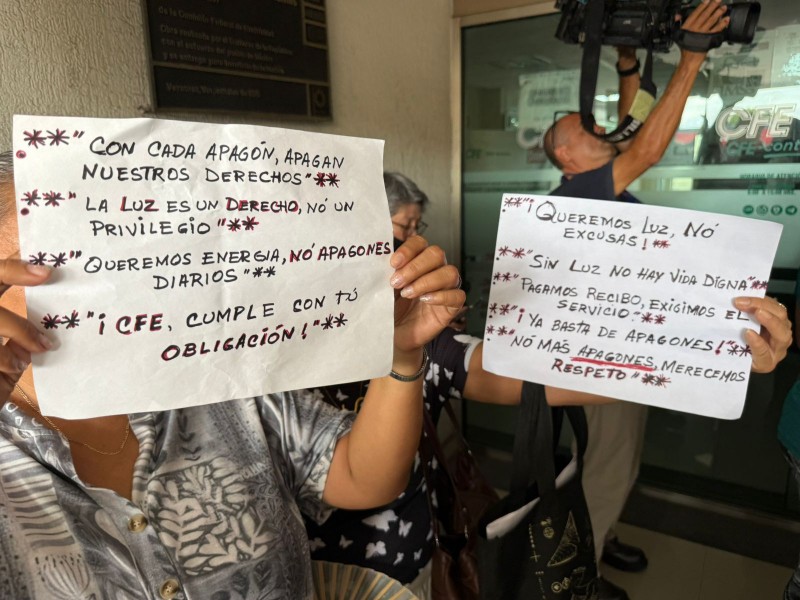 de la Comisión Federal de Electricidad
**"CON CADA APAGÓN, APAGAN
NUESTROS DERECHOS"**
**"LA LUZ ES UN DERECHO, NO UN
PRIVILEGIO"**
**"QUEREMOS ENERGIA, NO APAGONES
DIARIOS"**
**"¡CFE, CUMPLE CON TÚ
OBLIGACIÓN!"**
**"¡QUEREMOS LUZ, NO
EXCUSAS!**
**"SIN LUZ NO HAY VIDA DIGNA"**
**"PAGAMOS RECIBO, EXIGIMOS EL
SERVICIO"**
**"¡YA BASTA DE APAGONES!"**
**"NO MÁS APAGONES, MERECEMOS
RESPETO"**
CFE